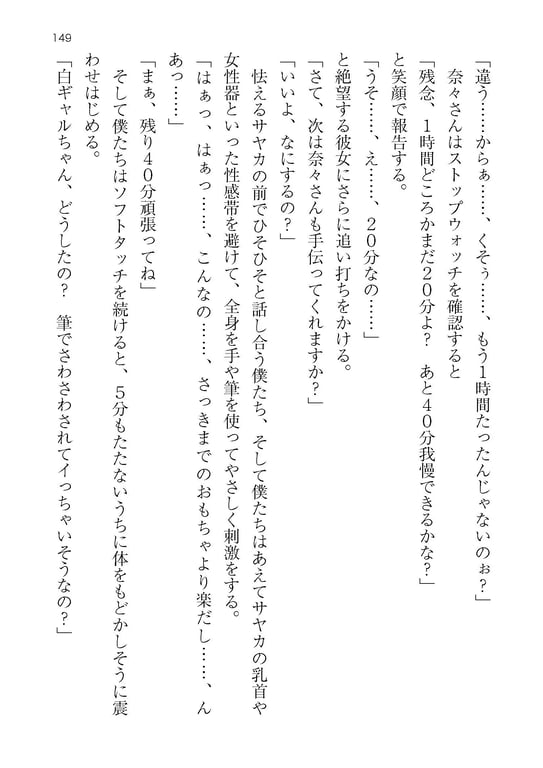 149
「違う……からぁ……、くそぅ……、もう1時間たったんじゃないのぉ？」
　奈々さんはストップウォッチを確認すると
「残念、1時間どころかまだ20分よ？　あと40分我慢できるかな？」
と笑顔で報告する。
「うそ……、え……、20分なの……」
と絶望する彼女にさらに追い打ちをかける。
「さて、次は奈々さんも手伝ってくれますか？」
「いいよ、なにするの？」
　怯えるサヤカの前でひそひそと話し合う僕たち、そして僕たちはあえてサヤカの乳首や
女性器といった性感帯を避けて、全身を手や筆を使ってやさしく刺激をする。
「はぁっ、はぁっ……、こんなの……、さっきまでのおもちゃより楽だし……、ん
あっ……」
「まぁ、残り40分頑張ってね」
　そして僕たちはソフトタッチを続けると、5分もたたないうちに体をもどかしそうに震
わせはじめる。
「白ギャルちゃん、どうしたの？　筆でさわさわされてイっちゃいそうなの？」